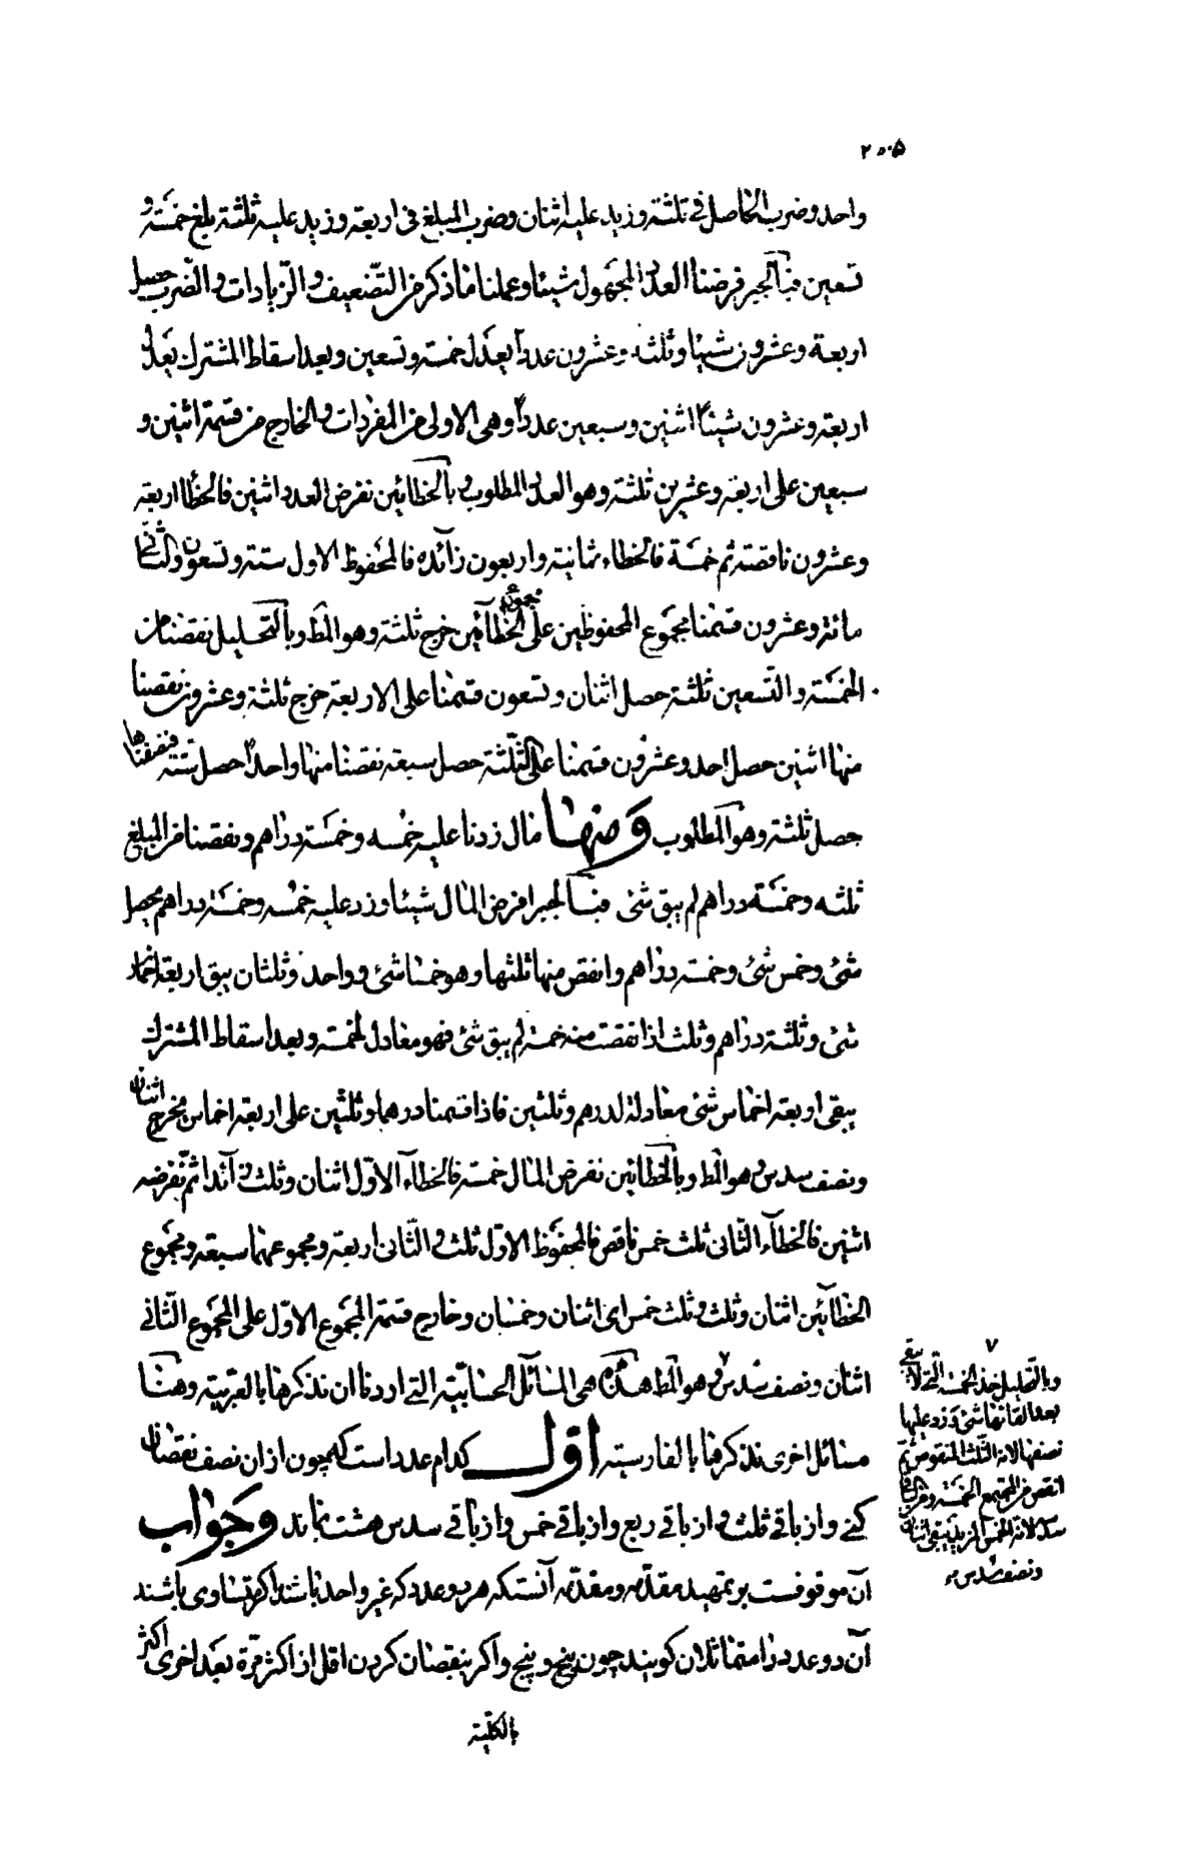 ۲۰۵
واحد وضرب الحاصل فی ثلثة وزید علیه اثنان وضرب المبلغ فی اربعة وزید علیه ثلثة بلغ خمسة و
تسعین فبالجبر فرضنا العدد المجهول شیئا وعملنا ما ذکر من التضعیف والزیادات والضرب حصل
اربعة وعشرون شیئا وثلثة وعشرون عددا یعدل خمسة وتسعین وبعد اسقاط المشترک یعدل
اربعة وعشرون شیئاً اثنین وسبعین عدداً وهی الاولی من المفردات والخارج من قسمة اثنین و
سبعین علی اربعة وعشرین ثلثة وهو العدد المطلوب وبالخطائین نفرض العدد اثنین فالخطأ اربعة
وعشرون ناقصة ثم خمسة فالخطاء ثمانیة واربعون زآئدة فالمحفوظ الاول ستة وتسعون والثانی
مائة وعشرون قسمنا مجموع المحفوظین علی مجموع الخطآئین خرج ثلثة وهو المط وبالتحلیل نقصنا من
الخمسة والتسعین ثلثة حصل اثنان وتسعون قسمنا علی الاربعة خرج ثلثة وعشرون نقصنا
منها اثنین حصل احد وعشرون قسمنا علی الثلثة حصل سبعة نقصنا منها واحداً حصل ستة فنصفناها
حصل ثلثة وهو المطلوب ومنها مال زدنا علیه خمسه وخمسة دراهم ونقصنا من المبلغ
ثلثه وخمسة دراهم لم یبق شئ فبالجبر افرض المال شیئا وزد علیه خمسه وخمسة دراهم یحصل
شئ وخمس شئ وخمسة دراهم وانقص منها ثلثها وهو خمسا شئ وواحد وثلثان یبق اربعة اخماس
شئ وثلثة دراهم وثلث اذا نقصت منه خمسة لم یبق شئ فهو معادل لخمسة وبعد اسقاط المشترک
یبقی اربعة اخماس شئ معادلة لدرهم وثلثین فاذا قسمنا درهما وثلثین علی اربعة اخماس یخرج اثنان
ونصف سدس وهو المط وبالخطائین نفرض المال خمسة فالخطآء الاوّل اثنان وثلث زآئدا ثم نفرضه
اثنین فالخطآء الثانی ثلث خمس ناقص فالمحفوظ الاوّل ثلث والثانی اربعة ومجموعهما سبعة ومجموع
الخطآئین اثنان وثلث وثلث خمس ای اثنان وخمسان وخارج قسمة المجموع الاوّل علی المجموع الثانی
اثنان ونصف سدس وهو المط هذه هی المسائل الحسابیّة التی اردنا ان نذکرها بالعربیة وهنا
مسائل اخری نذکرها بالفارسیة اقول کدام عدد است که چون از ان نصف نقصان
کنی واز باقی ثلث واز باقی ربع واز باقی خمس واز باقی سدس هشت بماند وجواب
آن موقوفست بر تمهید مقدّمه ومقدّمه آنستکه هر دو عدد که غیر واحد باشند اگر متساوی باشند
آن دو عدد را متماثلان کویند چون پنج و پنج واکر بنقصان کردن اقل از اکثر مرّة بعد اخری اکثر
بالکلیة
۷
وبالتحلیل خذ الخمسة التی لا یبقی
بعد القائها شئ وزد علیها
نصفها لانه الثلث المنقوص ثم
انقص من المجتمع الخمسة ومن الباقی
سدسه لانه الخمس المزید یبقی اثنان
ونصف سدس